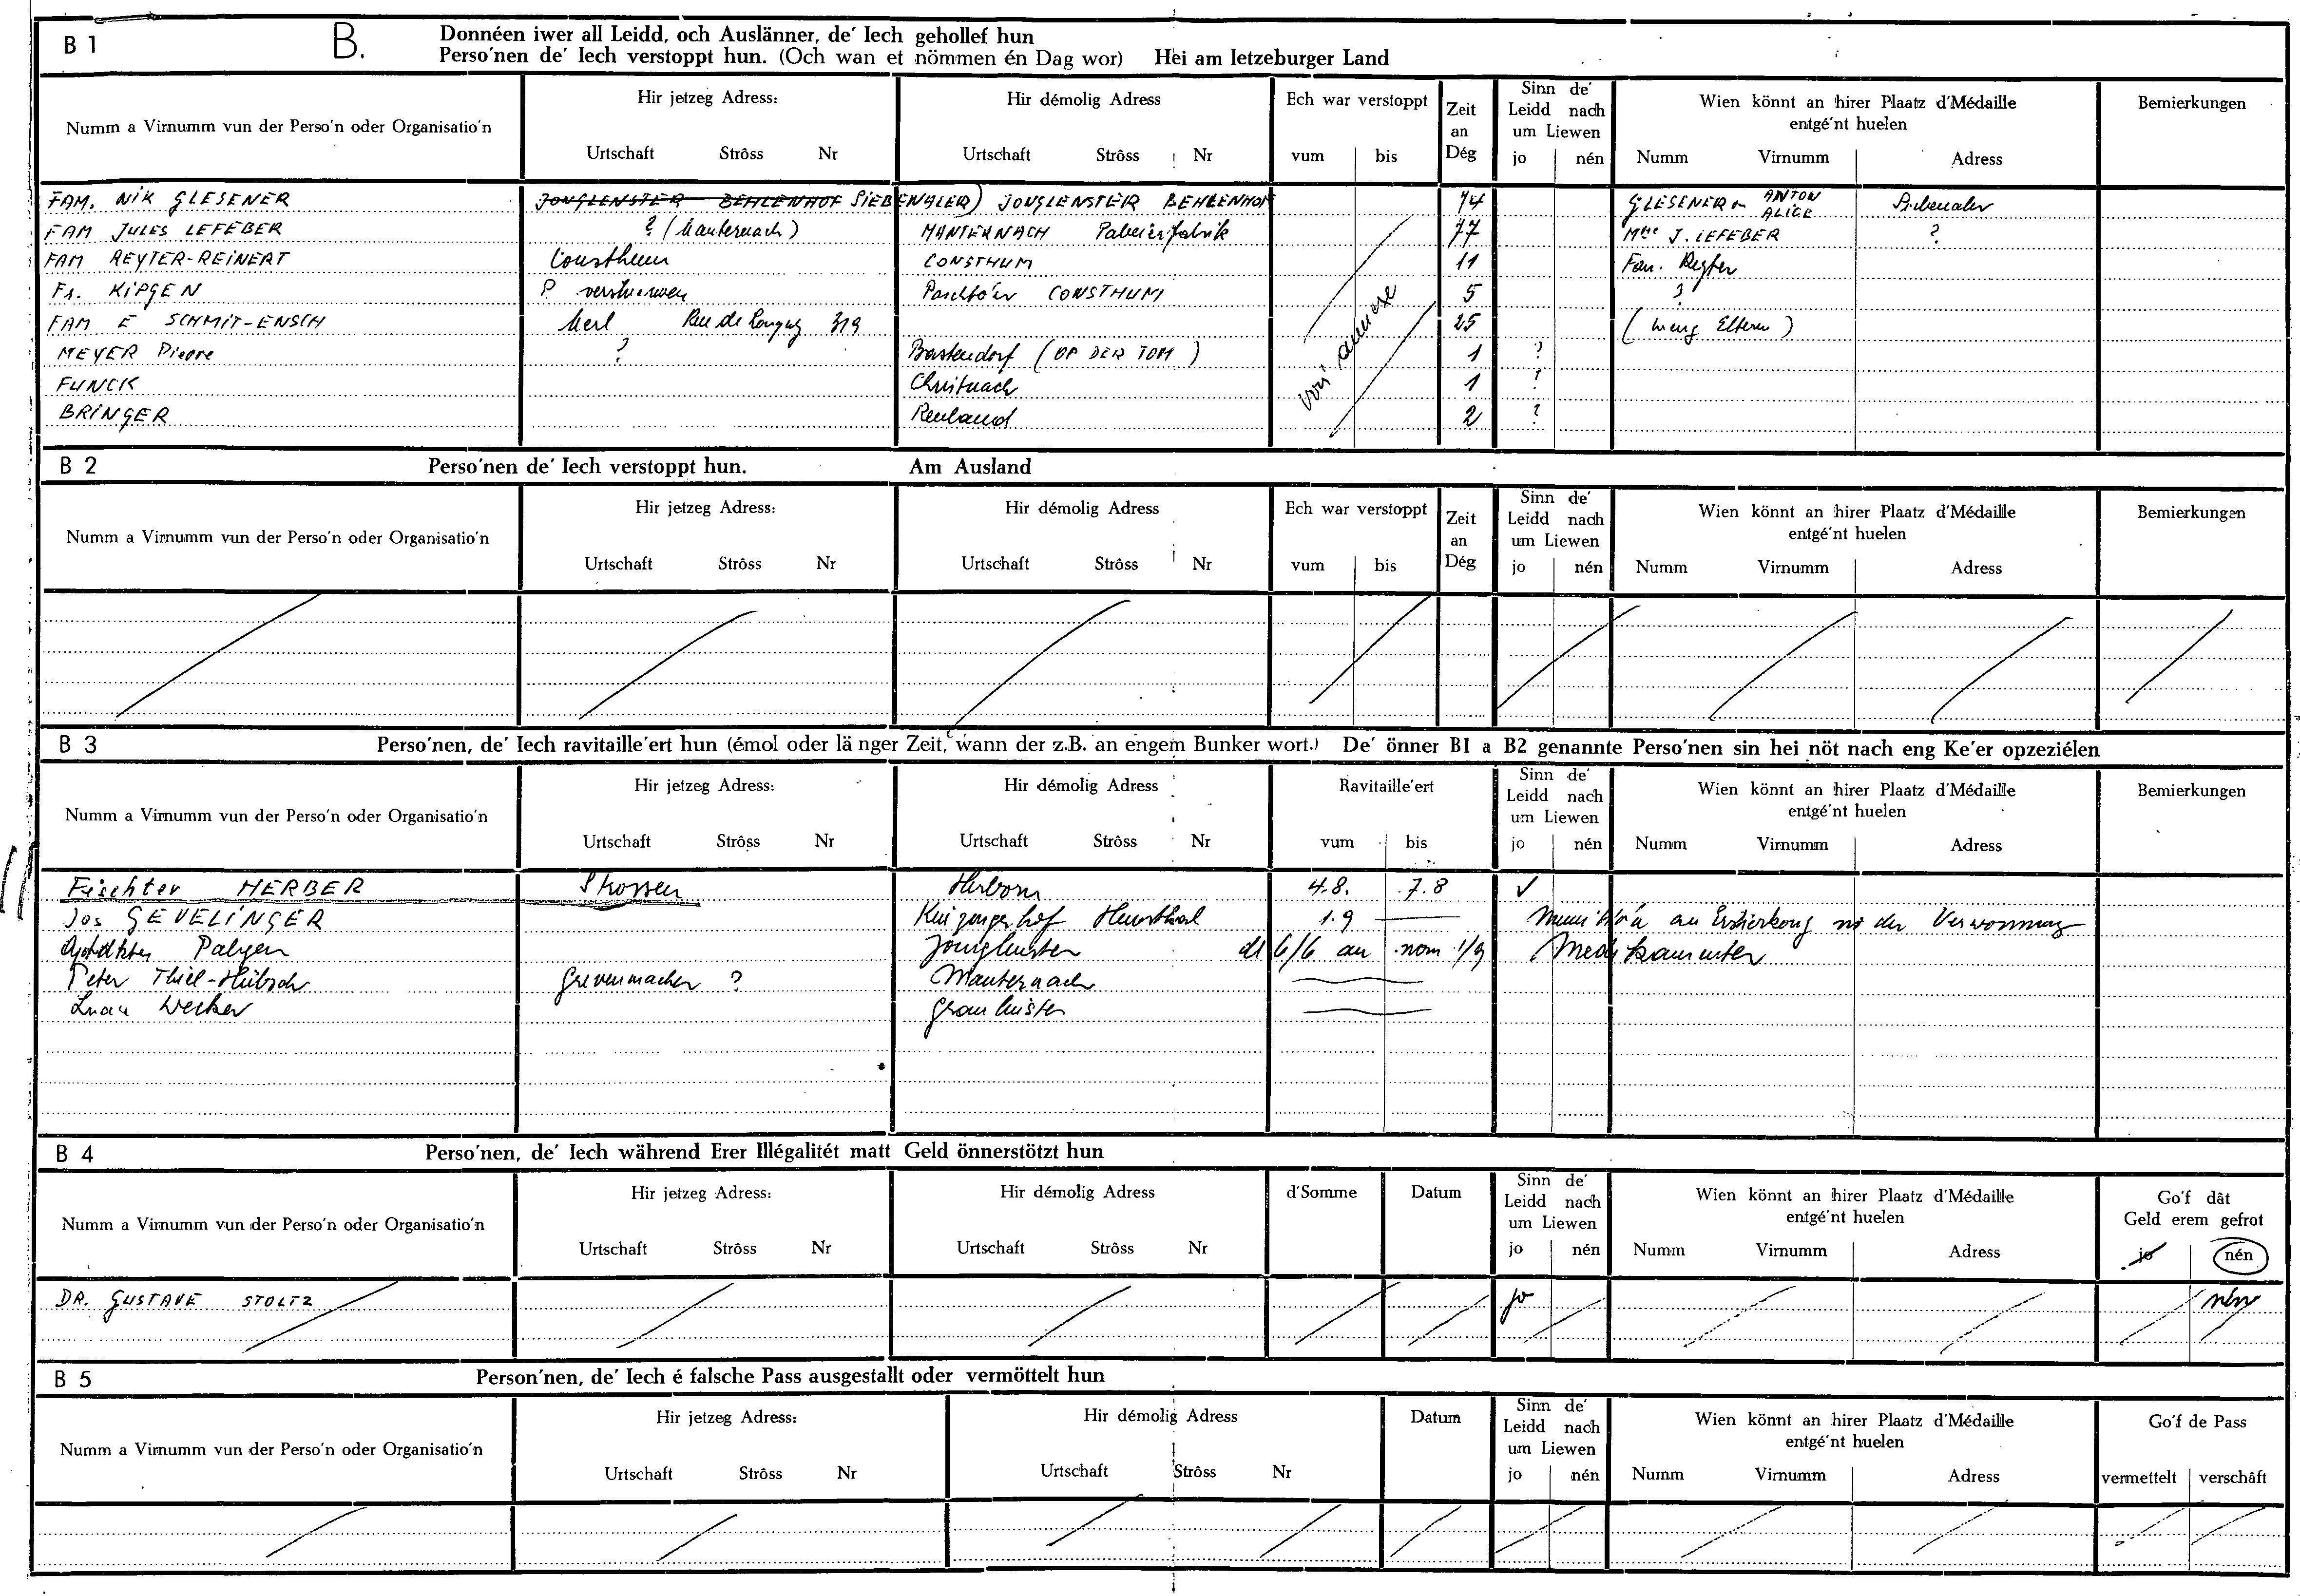 B 1 B. Donnéen iwer all Leidd, och Auslänner, de' Iech gehollef hun
Perso'nen de' Iech verstoppt hun. (Och wan et nömmen én Dag wor) Hei am letzeburger Land
Numm a Virnumm vun der Perso'n oder Organisatio'n
Hir jetzeg Adress:
Urtschaft Strôss Nr
Hir démolig Adress
Urtschaft Strôss Nr
Ech war verstoppt
vum bis
Zeit
an
Dég
Sinn de'
Leidd nach
um Liewen
jo nén
Wien könnt an hirer Plaatz d'Médaille
entgé'nt huelen
Numm Virnumm Adress
Bemierkungen
FAM. NIK GLESENER JONGLENSTER BEHLENHOF SIEBENALER) JONGLENSTER BEHLENHOF 74 GLESENER ANTON ALICE Siebenaler
FAM JULES LEFEBER ? (Manternach) MANTERNACH Pabeierfabrik 77 Mme J. LEFEBER ?
FAM REYTER-REINERT Consthum CONSTHUM 11 Fam. Reyter
Fr. KIPGEN ? verstuerwen CONSTHUM 5 ?
FAM E SCHMIT-ENSCH Merl Rue de Longwy 319 25 (meng Elteren)
MEYER Pierre ? Bastendorf (OP DER TOM) 1 ?
FUNCK Christnach 1 ?
BRINGER Reuland 2 ?
B 2 Perso'nen de' Iech verstoppt hun. Am Ausland
Numm a Virnumm vun der Perso'n oder Organisatio'n
Hir jetzeg Adress:
Urtschaft Strôss Nr
Hir démolig Adress
Urtschaft Strôss Nr
Ech war verstoppt
vum bis
Zeit
an
Dég
Sinn de'
Leidd nach
um Liewen
jo nén
Wien könnt an hirer Plaatz d'Médaille
entgé'nt huelen
Numm Virnumm Adress
Bemierkungen
B 3 Perso'nen, de' Iech ravitaille'ert hun (émol oder länger Zeit, wann der z.B. an engem Bunker wort.) De' önner B1 a B2 genannte Perso'nen sin hei nöt nach eng Ke'er opzeziélen
Numm a Virnumm vun der Perso'n oder Organisatio'n
Hir jetzeg Adress:
Urtschaft Strôss Nr
Hir démolig Adress
Urtschaft Strôss Nr
Ravitaille'ert
vum bis
Sinn de'
Leidd nach
um Liewen
jo nén
Wien könnt an hirer Plaatz d'Médaille
entgé'nt huelen
Numm Virnumm Adress
Bemierkungen
Fischter HERBER Herborn 4.8. 7.8 ✓
Jos GEVELINGER 1.9
Palgen Jonglenster 6/6 an nom 1/9 Medikamenter
Peter Thiel-Hübsch Grevenmacher ? Manternach
Wecker
B 4 Perso'nen, de' Iech während Erer Illégalitét matt Geld önnerstötzt hun
Numm a Virnumm vun der Perso'n oder Organisatio'n
Hir jetzeg Adress:
Urtschaft Strôss Nr
Hir démolig Adress
Urtschaft Strôss Nr
d'Somme
Datum
Sinn de'
Leidd nach
um Liewen
jo nén
Wien könnt an hirer Plaatz d'Médaille
entgé'nt huelen
Numm Virnumm Adress
Go'f dât
Geld erem gefrot
jo nén
DR. GUSTAVE STOLTZ jo nén
B 5 Person'nen, de' Iech é falsche Pass ausgestallt oder vermöttelt hun
Numm a Virnumm vun der Perso'n oder Organisatio'n
Hir jetzeg Adress:
Urtschaft Strôss Nr
Hir démolig Adress
Urtschaft Strôss Nr
Datum
Sinn de'
Leidd nach
um Liewen
jo nén
Wien könnt an hirer Plaatz d'Médaille
entgé'nt huelen
Numm Virnumm Adress
Go'f de Pass
vermettelt verschâft